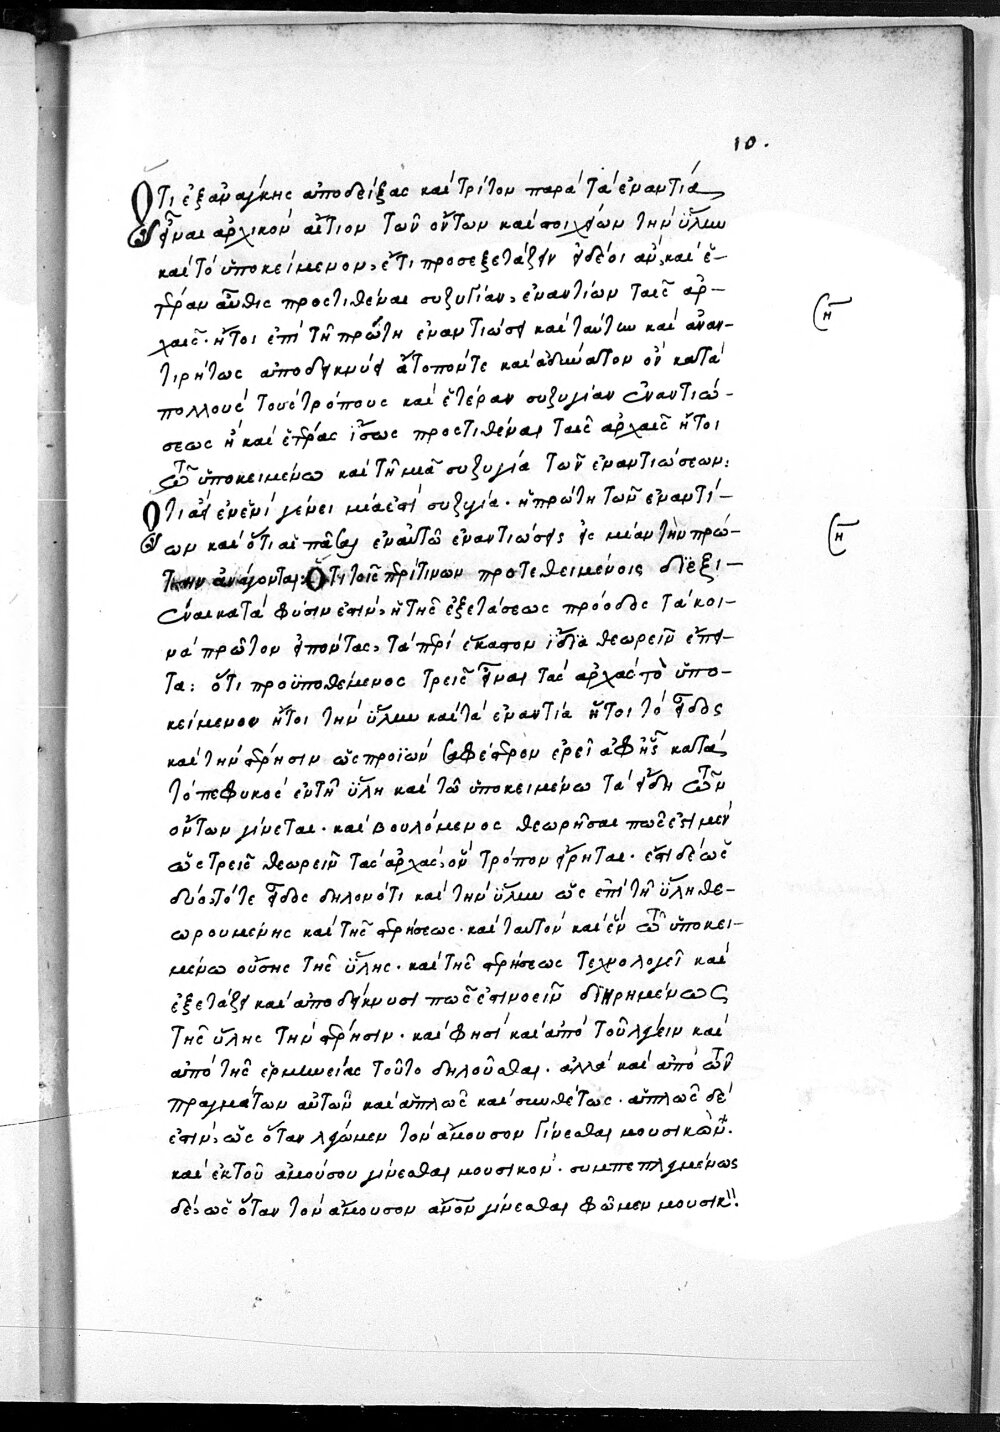 10.
Ὅτι ἐξ ἀνάγκης ἀποδείξας καὶ τρίτον παρὰ τὰ ἐναντία
εἶναι ἀρχικὸν αἴτιον τῶν ὄντων καὶ στοιχεῖον τὴν ὕλην
καὶ τὸ ὑποκείμενον, ἔτι προσεξετάζειν εἰ δέοι ἂν καὶ ἑ-
τέραν αὖθις προστιθέναι συζυγίαν, ἐναντίων ταῖς ἀρ-
χαῖς· ἤτοι ἐπὶ τῇ πρώτῃ ἐναντιώσει καὶ ταύτην καὶ ἀναν-
τιρήτως ἀποδείκνυσι ἄτοπόν τε καὶ ἀδύνατον ὂν κατὰ
πολλοὺς τοὺς τρόπους καὶ ἑτέραν συζυγίαν ἐναντιώ-
σεως ἢ καὶ ἑτέρας ἴσως προστιθέναι ταῖς ἀρχαῖς ἤτοι
τῷ ὑποκειμένῳ καὶ τῇ μιᾷ συζυγίᾳ τῶν ἐναντιώσεων:
Ὅτι ἀεὶ ἐν ἑνὶ γένει μία ἐστὶ συζυγία· ἡ πρώτη τῶν ἐναντί-
ων καὶ ὅτι αἱ πᾶσαι ἐν αὐτῷ ἐναντιώσεις εἰς μίαν τὴν πρώ-
την ἀνάγονται: Ὅτι τοῖς περί τινων προτεθειμένοις διεξι-
έναι κατὰ φύσιν ἐστὶν, ἡ τῆς ἐξετάσεως πρόοδος τὰ κοι-
νὰ πρῶτον εἰπόντας, τὰ περὶ ἕκαστον ἰδίᾳ θεωρεῖν ἔπει-
τα: ὅτι προϋποθέμενος τρεῖς εἶναι τὰς ἀρχάς τὸ ὑπο-
κείμενον ἤτοι τὴν ὕλην καὶ τὰ ἐναντία ἤτοι τὸ εἶδος
καὶ τὴν στέρησιν ὡς προϊὼν σαφέστερον ἐρεῖ ἐφεξῆς κατὰ
τὸ πεφυκὸς ἐν τῇ ὕλῃ καὶ τῷ ὑποκειμένῳ τὰ εἴδη τῶν
ὄντων γίνεται· καὶ βουλόμενος θεωρῆσαι πῶς ἔστι μὲν
ὡς τρεῖς θεωρεῖν τὰς ἀρχάς, ὃν τρόπον εἴρηται· ἔστι δὲ ὡς
δύο, τό τε εἶδος δηλονότι καὶ τὴν ὕλην ὡς ἐπὶ τῇ ὕλῃ θε-
ωρουμένης καὶ τῆς στερήσεως· καὶ ταυτὸν καὶ ἓν τῷ ὑποκει-
μένῳ οὔσης τῆς ὕλης· καὶ τῆς στερήσεως τεχνολογεῖ καὶ
ἐξετάζει καὶ ἀποδείκνυσι πῶς ἔστι νοεῖν διῃρημένως
τῆς ὕλης τὴν στέρησιν· καὶ φησὶ καὶ ἀπὸ τοῦ λέγειν καὶ
ἀπὸ τῆς ἑρμηνείας τοῦτο δηλοῦσθαι· ἀλλὰ καὶ ἀπὸ τῶν
πραγμάτων αὐτῶν καὶ ἁπλῶς καὶ συνθέτως· ἁπλῶς δέ
ἐστιν, ὡς ὅταν λέγωμεν τὸν ἄμουσον γίνεσθαι μουσικόν·
καὶ ἐκ τοῦ ἀμούσου γίνεσθαι μουσικόν· συμπεπλεγμένως
δέ, ὡς ὅταν τὸν ἄμουσον ἄνον γίνεσθαι φῶμεν μουσικ".